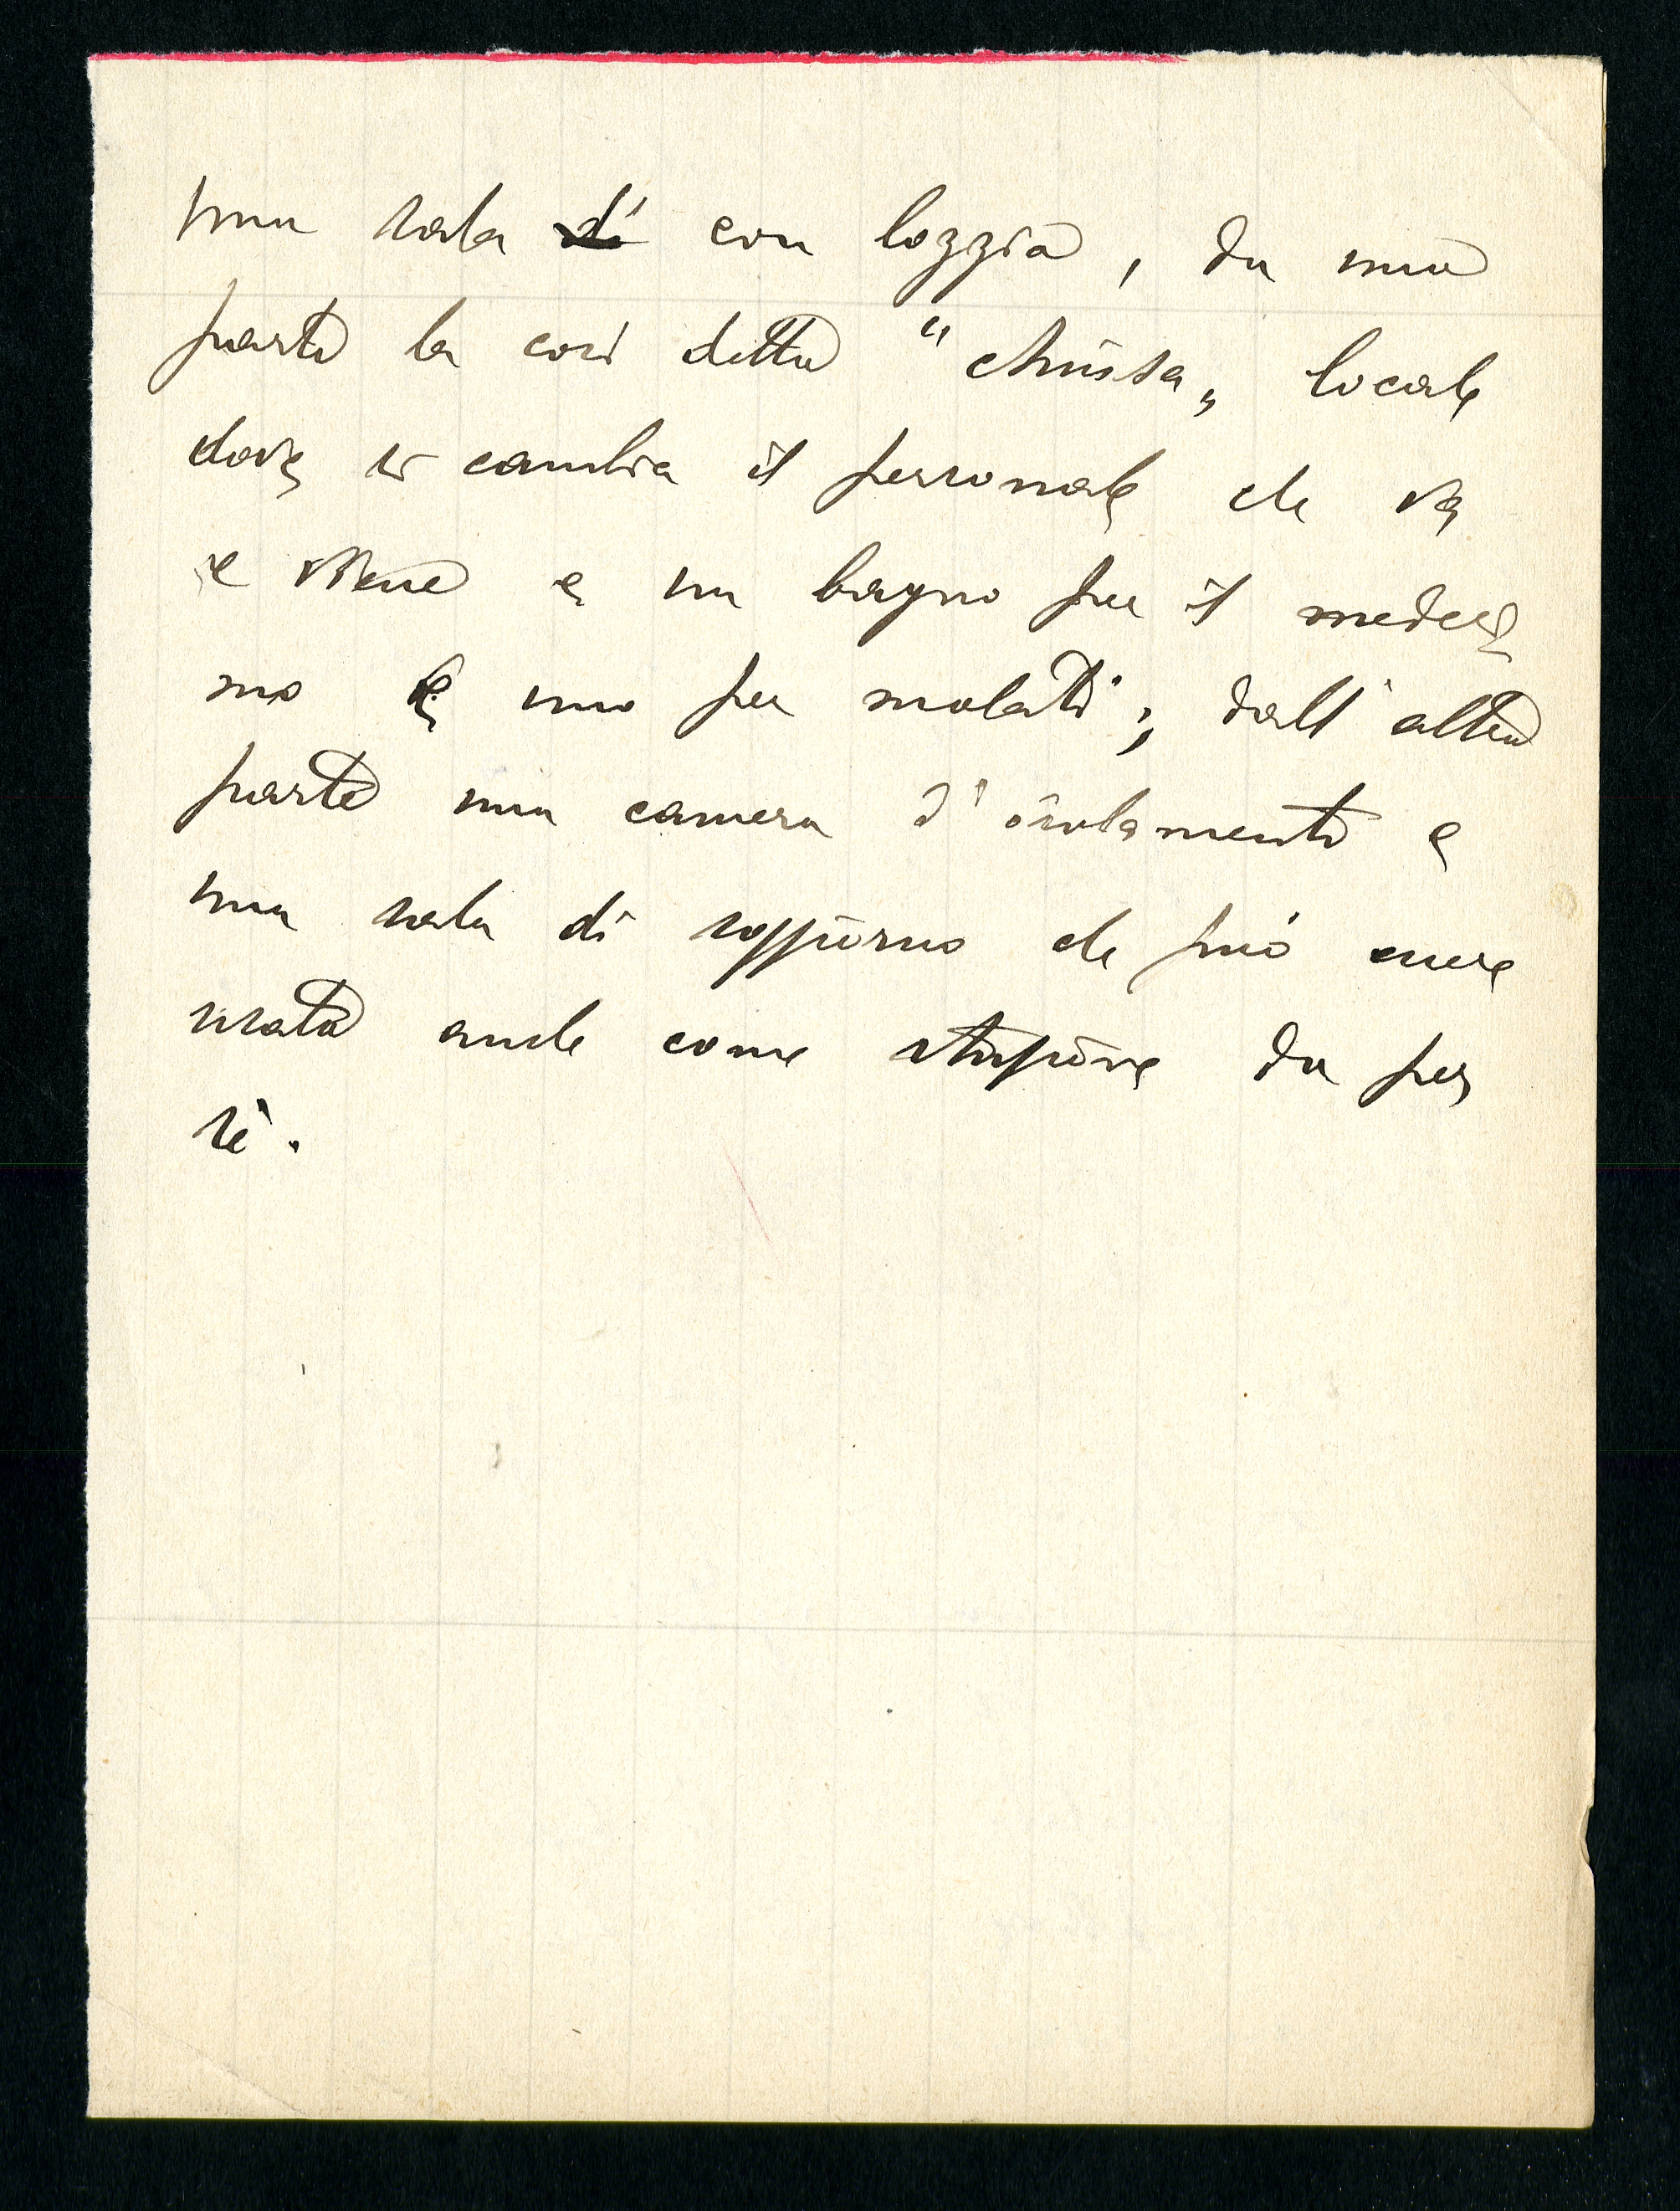 una sala di con loggia, da una
parte la così detta "chiusa„ locale
dove si cambia il personale che va
e viene e un bagno per il medesi
mo e uno per malati; dall'altra
parte una camera d'isolamento e
una sala di soggiorno che può essere
usata anche come stazione da per
sè.